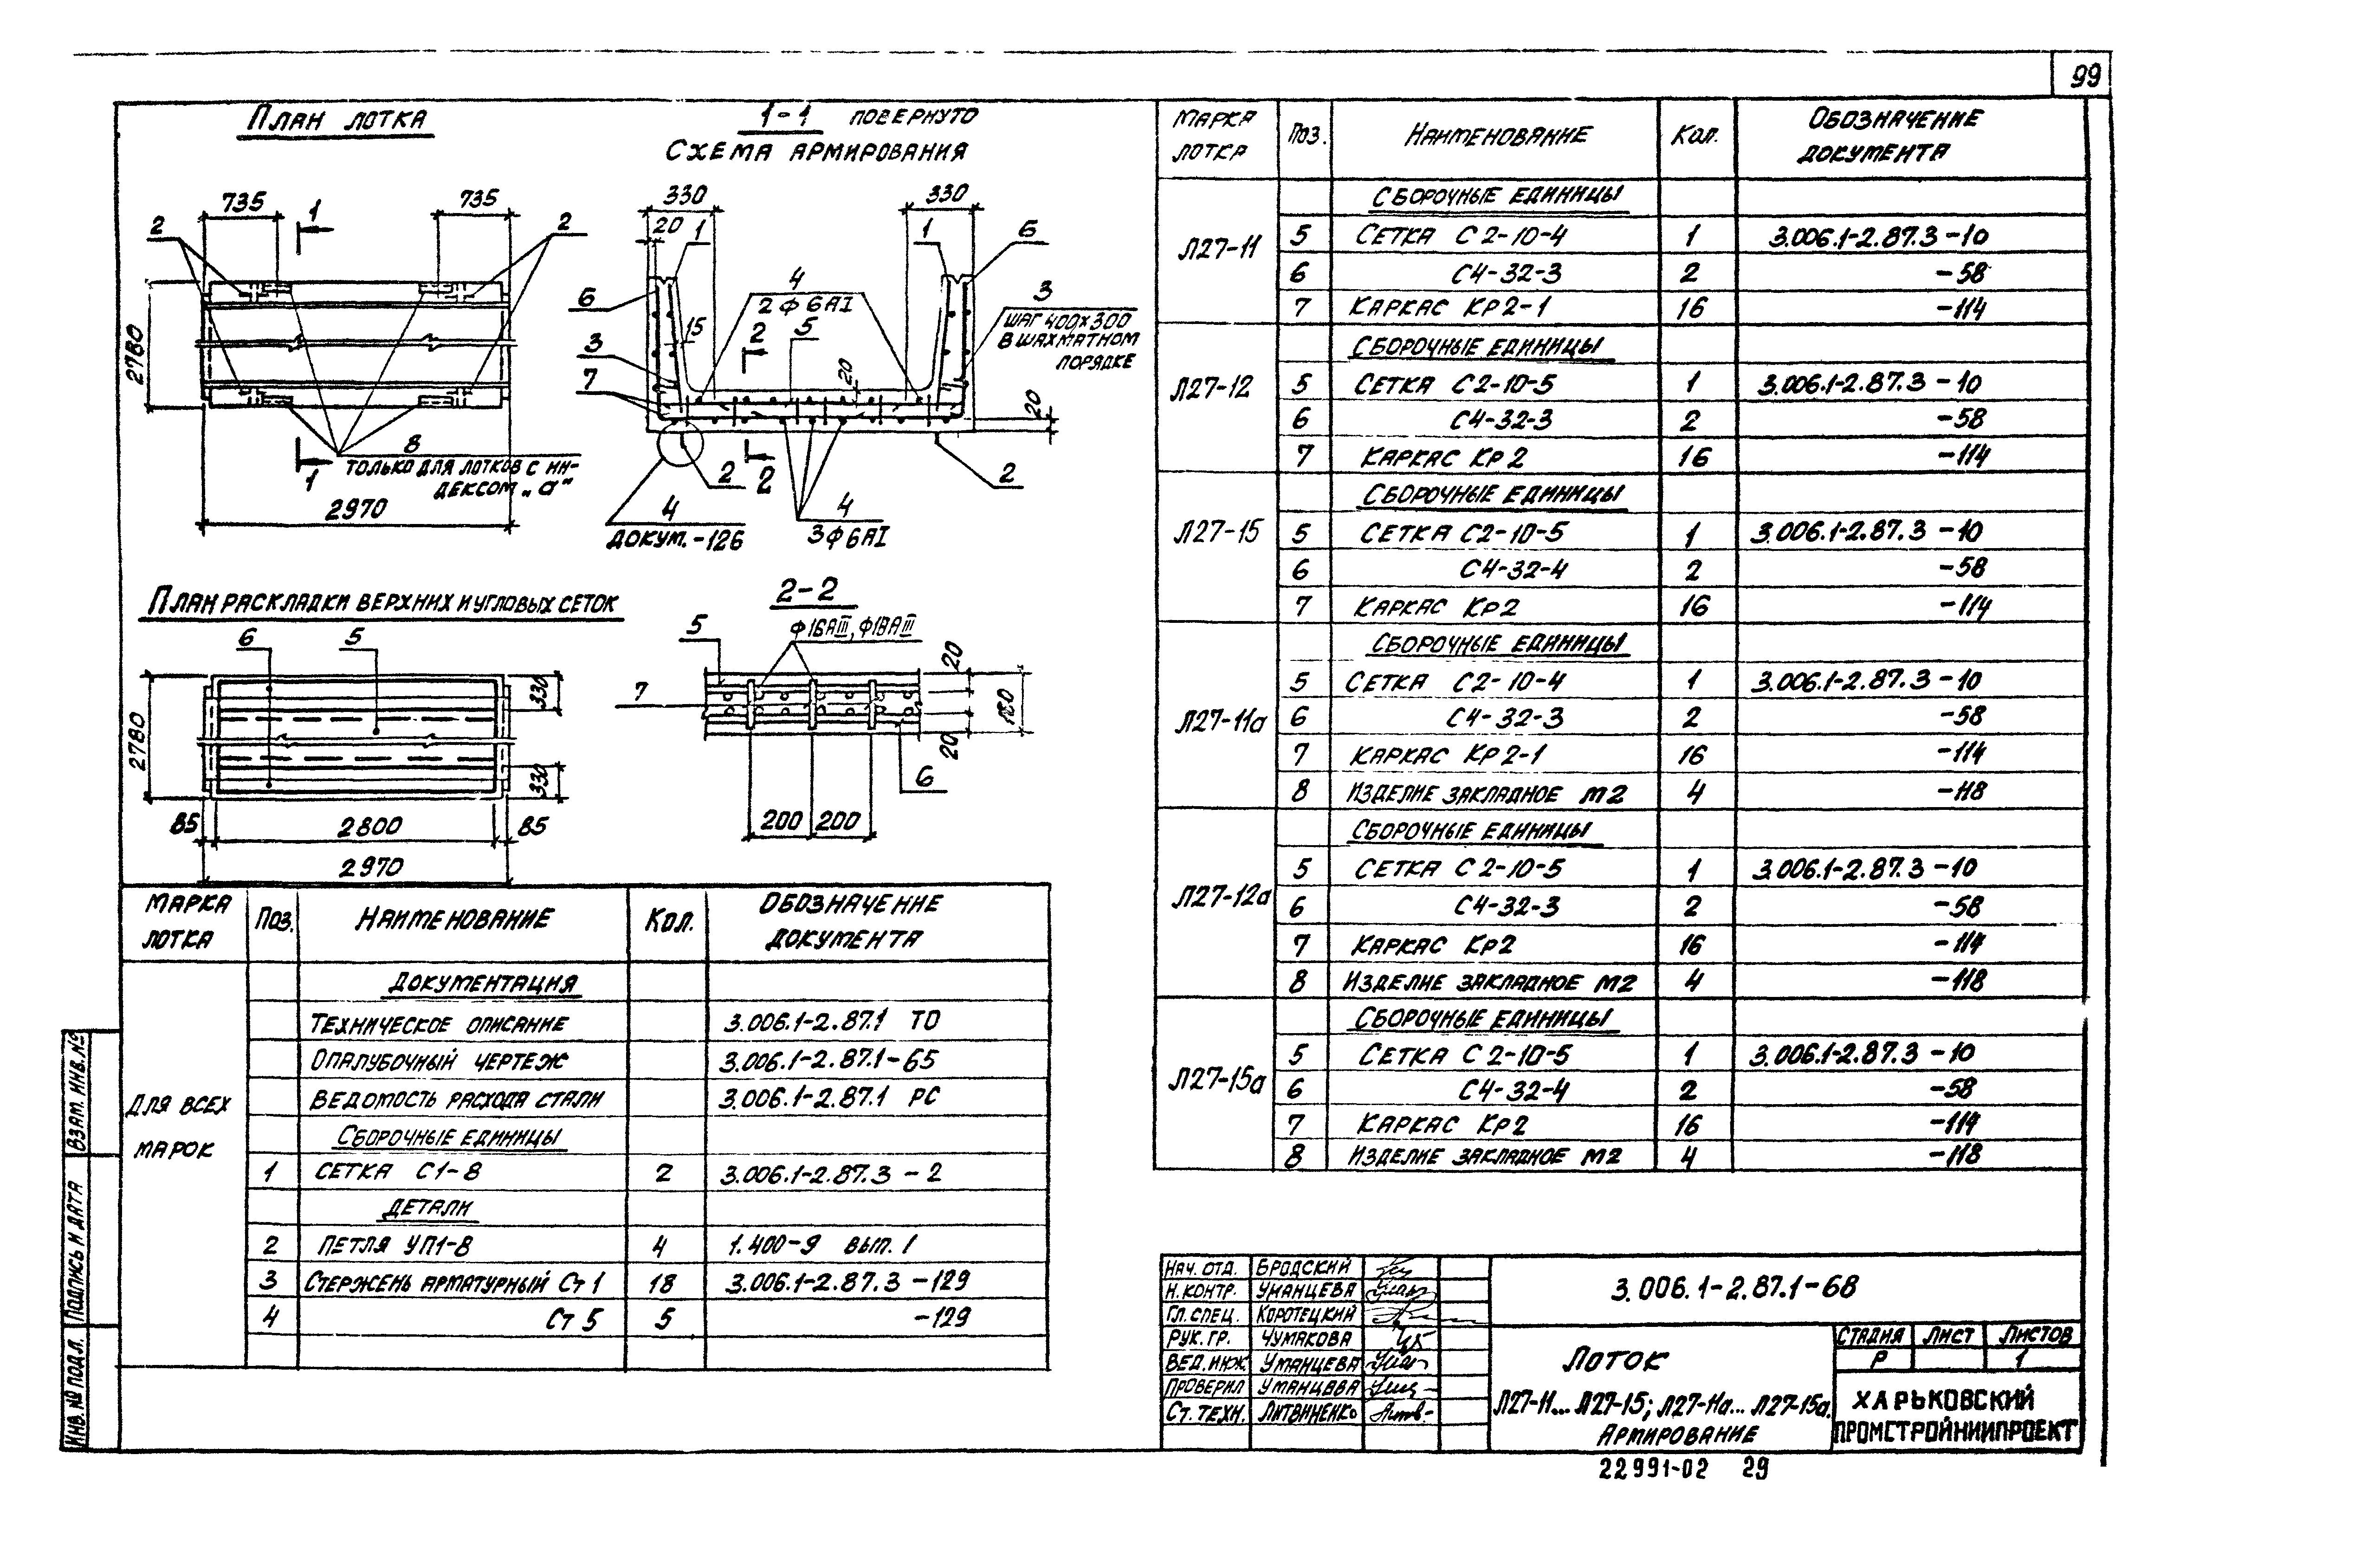 99
План лотка
735
735
1
2
2
2780
8
только для лотков с ин-
дексом „а"
1
2970
1-1 повернуто
Схема армирования
330
330
20
1
1
6
4
2ф6АI
3
шаг 400х300
в шахматном
порядке
6
15
2
5
3
7
20
20
2
2
2
4
докум.-126
4
3ф6АI
План раскладки верхних и угловых сеток
6
5
2780
330
330
85
2800
85
2970
2-2
ф16АIII, ф18АIII
5
7
20
20
6
200
200
Марка лотка
Поз.
Наименование
Кол.
Обозначение документа
Для всех марок
Документация
Техническое описание 3.006.1-2.87.1 ТО
Опалубочный чертеж 3.006.1-2.87.1-65
Ведомость расхода стали 3.006.1-2.87.1 РС
Сборочные единицы
1 Сетка С1-8 2 3.006.1-2.87.3-2
Детали
2 Петля УП1-8 4 1.400-9 вып. 1
3 Стержень арматурный Ст1 18 3.006.1-2.87.3-129
4 Ст5 5 -129
Марка лотка
Поз.
Наименование
Кол.
Обозначение документа
Л27-11
Сборочные единицы
5 Сетка С2-10-4 1 3.006.1-2.87.3-10
6 С4-32-3 2 -58
7 Каркас Кр2-1 16 -114
Л27-12
Сборочные единицы
5 Сетка С2-10-5 1 3.006.1-2.87.3-10
6 С4-32-3 2 -58
7 Каркас Кр2 16 -114
Л27-15
Сборочные единицы
5 Сетка С2-10-5 1 3.006.1-2.87.3-10
6 С4-32-4 2 -58
7 Каркас Кр2 16 -114
Л27-11а
Сборочные единицы
5 Сетка С2-10-4 1 3.006.1-2.87.3-10
6 С4-32-3 2 -58
7 Каркас Кр2-1 16 -114
8 Изделие закладное М2 4 -118
Л27-12а
Сборочные единицы
5 Сетка С2-10-5 1 3.006.1-2.87.3-10
6 С4-32-3 2 -58
7 Каркас Кр2 16 -114
8 Изделие закладное М2 4 -118
Л27-15а
Сборочные единицы
5 Сетка С2-10-5 1 3.006.1-2.87.3-10
6 С4-32-4 2 -58
7 Каркас Кр2 16 -114
8 Изделие закладное М2 4 -118
Взам. инв. №
Подпись и дата
Инв. № подл.
Нач. отд. Бродский
Н. контр. Уманцева
Гл. спец. Коротецкий
Рук. гр. Чумакова
Вед. инж. Уманцева
Проверил Уманцева
Ст. техн. Литвиненко
3.006.1-2.87.1-68
Лоток
Л27-11... Л27-15; Л27-11а... Л27-15а.
Армирование
Стадия Лист Листов
Р 1
Харьковский
Промстройниипроект
22991-02 29